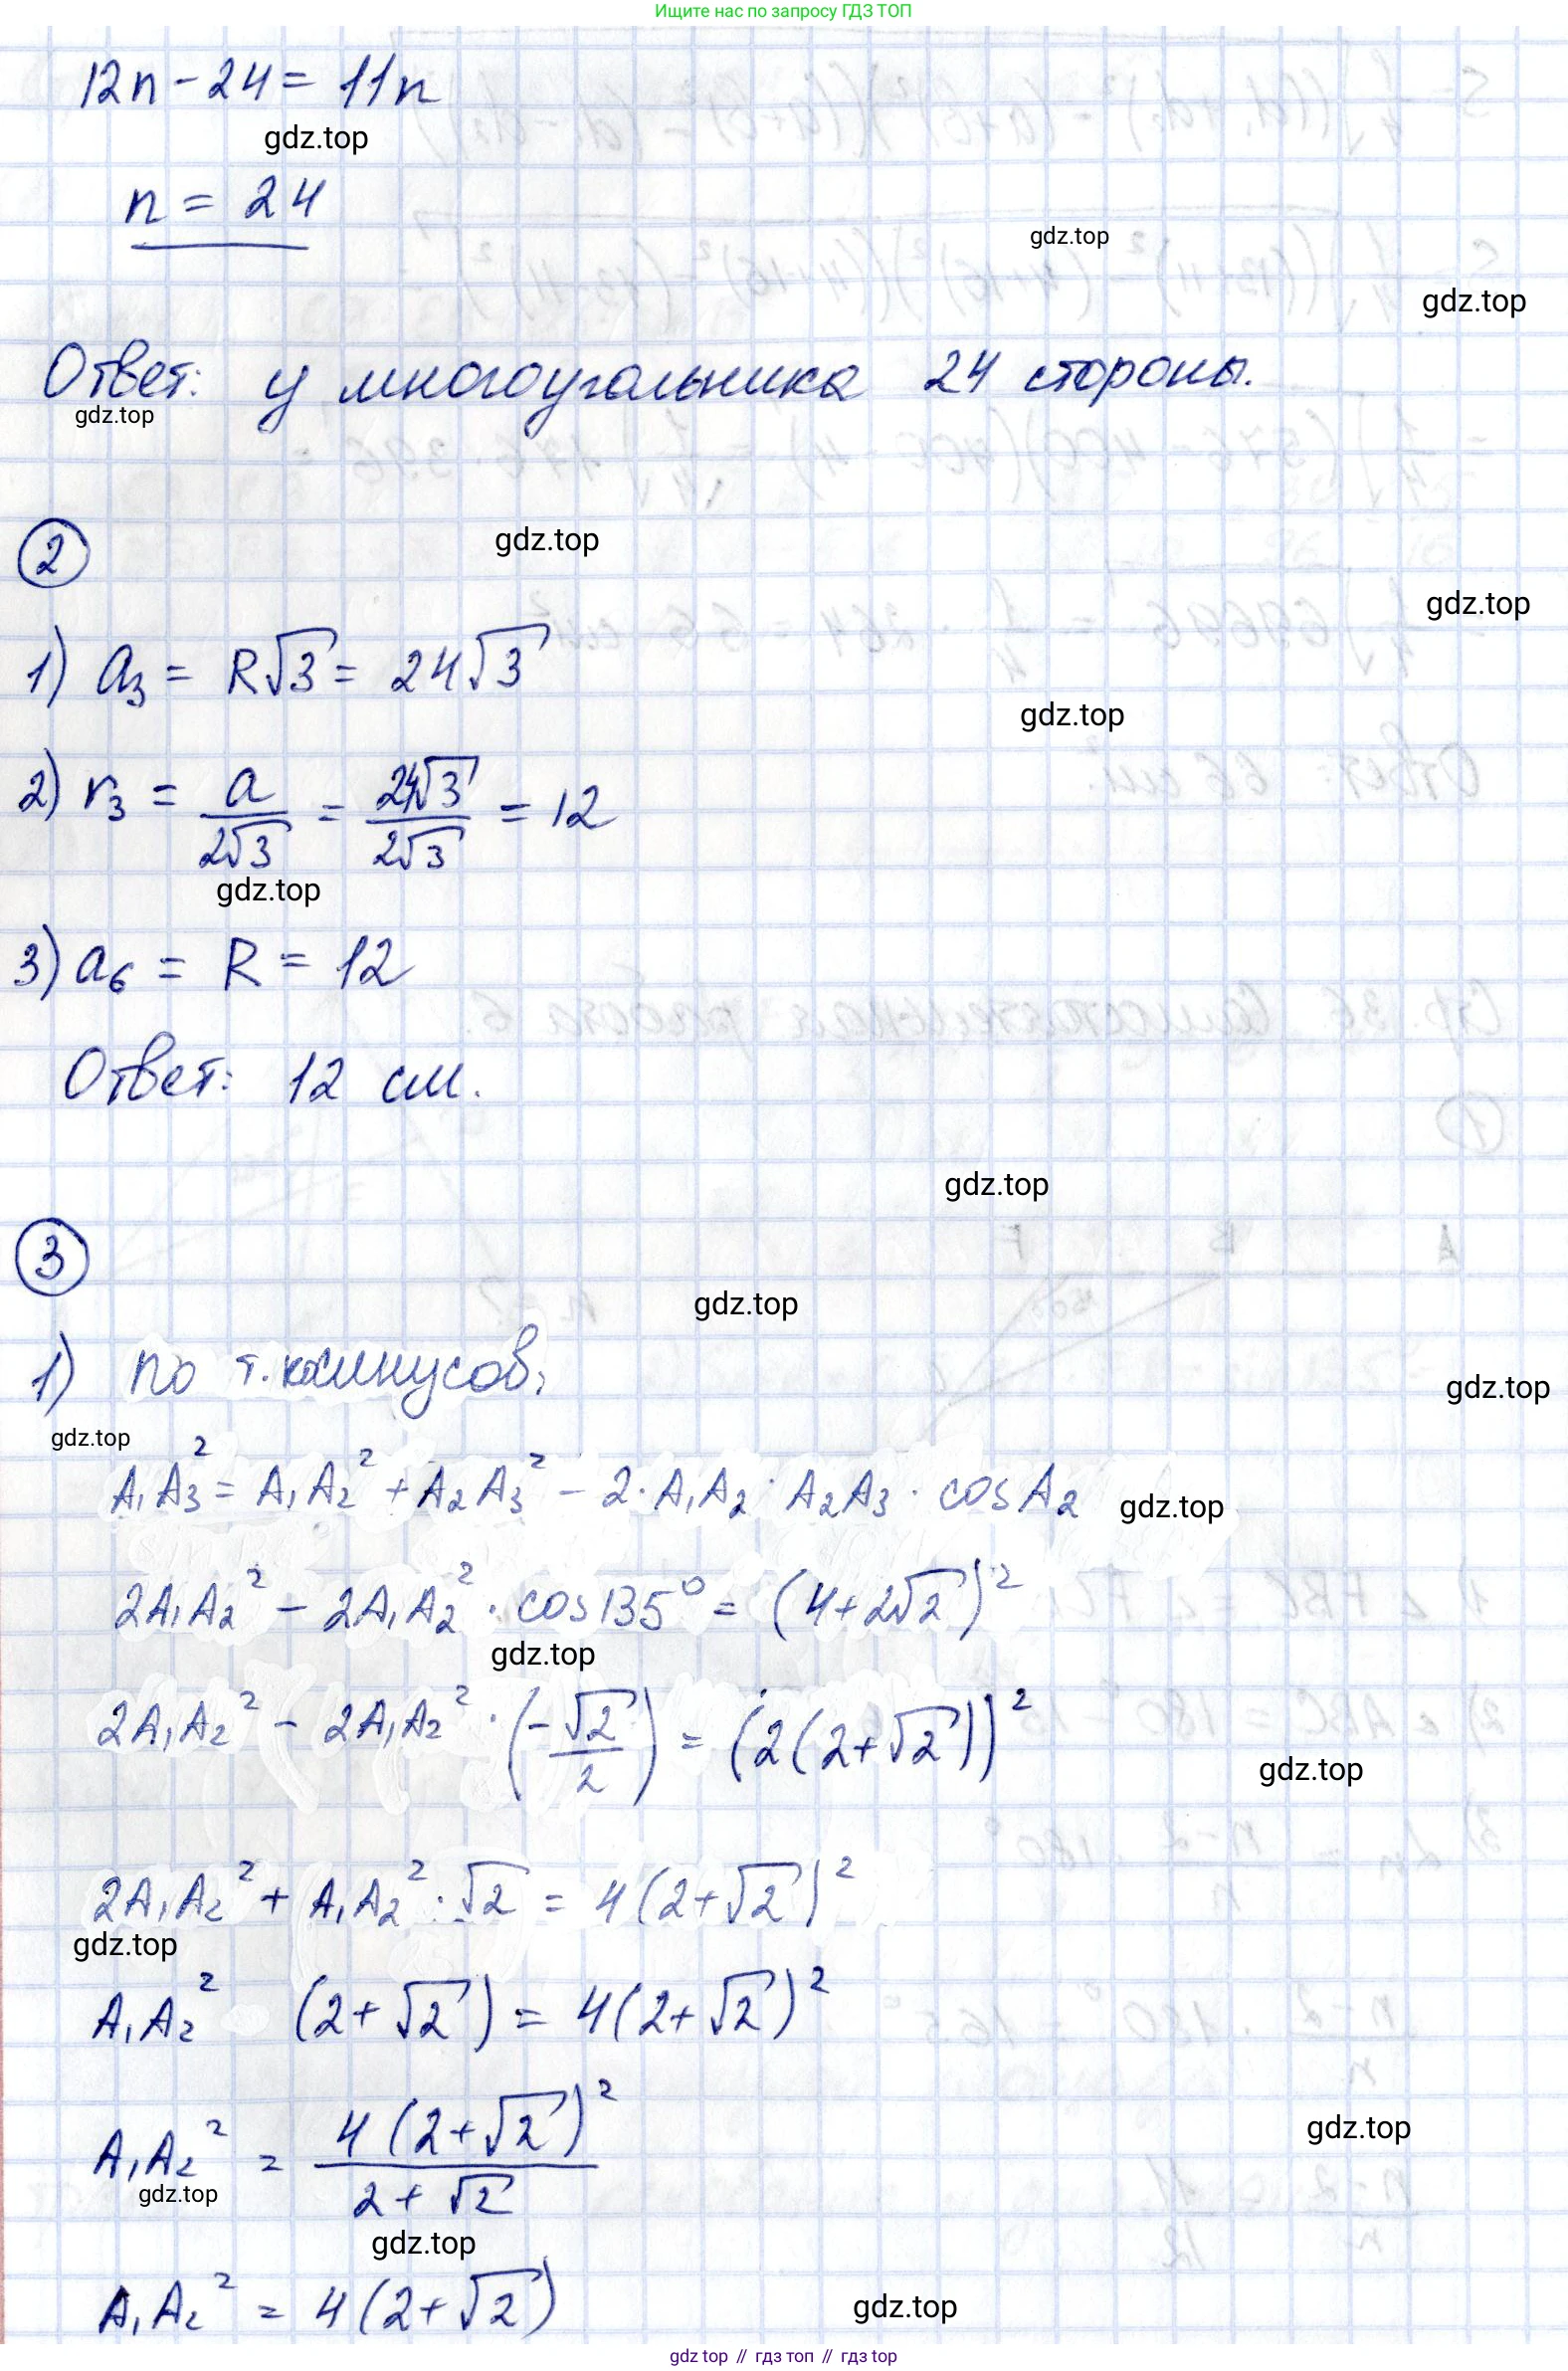 Ищите нас по запросу ГДЗ ТОП
12n - 24 = 11n
gdz.top
n = 24
gdz.top
gdz.top
Ответ: у многоугольника 24 стороны.
gdz.top
2
gdz.top
gdz.top
1) a₃ = R√3 = 24√3
gdz.top
2) r₃ = a/(2√3) = 24√3/(2√3) = 12
gdz.top
3) a₆ = R = 12
Ответ: 12 см.
gdz.top
3
gdz.top
1) по т. косинусов,
gdz.top
gdz.top
A₁A₃² = A₁A₂² + A₂A₃² - 2·A₁A₂·A₂A₃·cosA₂
gdz.top
2A₁A₂² - 2A₁A₂²·cos135° = (4+2√2)²
gdz.top
2A₁A₂² - 2A₁A₂²·(-√2/2) = (2(2+√2))²
gdz.top
2A₁A₂² + A₁A₂²·√2 = 4(2+√2)²
gdz.top
A₁A₂² (2+√2) = 4(2+√2)²
A₁A₂² = 4(2+√2)²/(2+√2)
gdz.top
gdz.top
gdz.top
A₁A₂² = 4(2+√2)
gdz.top
gdz top // гдз топ // гдз top